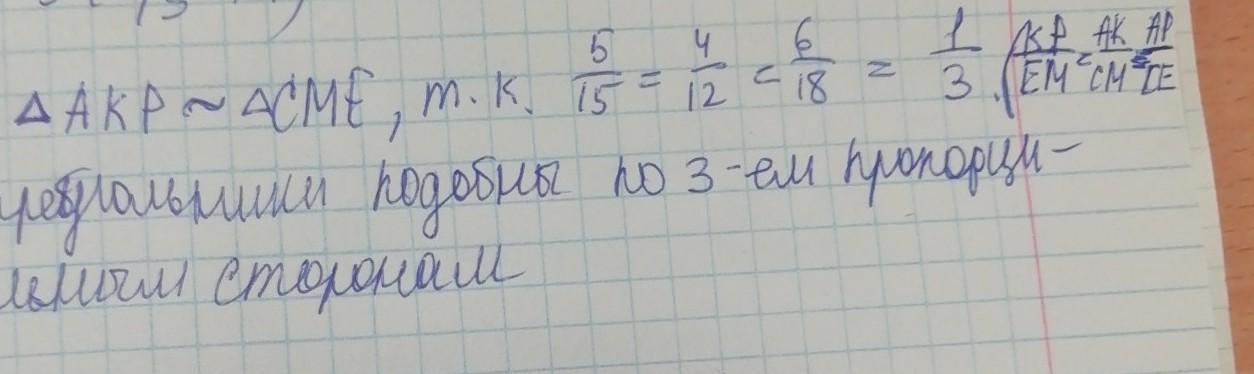 △AKP ~ △CME, т.к. 5/15 = 4/12 = 6/18 = 1/3. (KP/EM = AK/CM = AP/CE
реугольники подобны по 3-ем пропорци-
льным сторонам